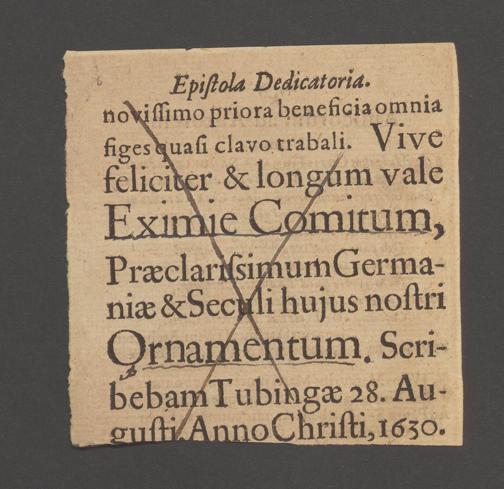 Epiſtola Dedicatoria.
noviſſimo priora beneficia omnia
figes quaſi clavo trabali. Vive
feliciter & longum vale
Eximie Comitum,
Præclariſſimum Germa-
niæ & Seculi hujus noſtri
Ornamentum. Scri-
bebam Tubingæ 28. Au-
guſti Anno Chriſti, 1630.